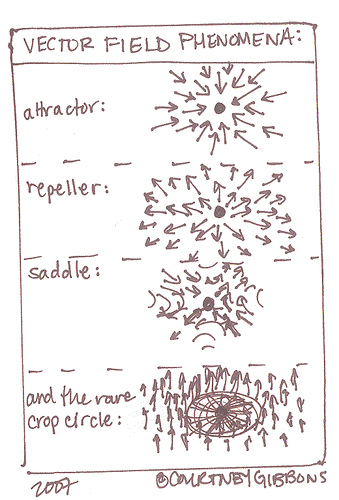 VECTOR FIELD PHENOMENA:
attractor:
repeller:
saddle:
and the rare
crop circle:
2007 ©COURTNEY GIBBONS